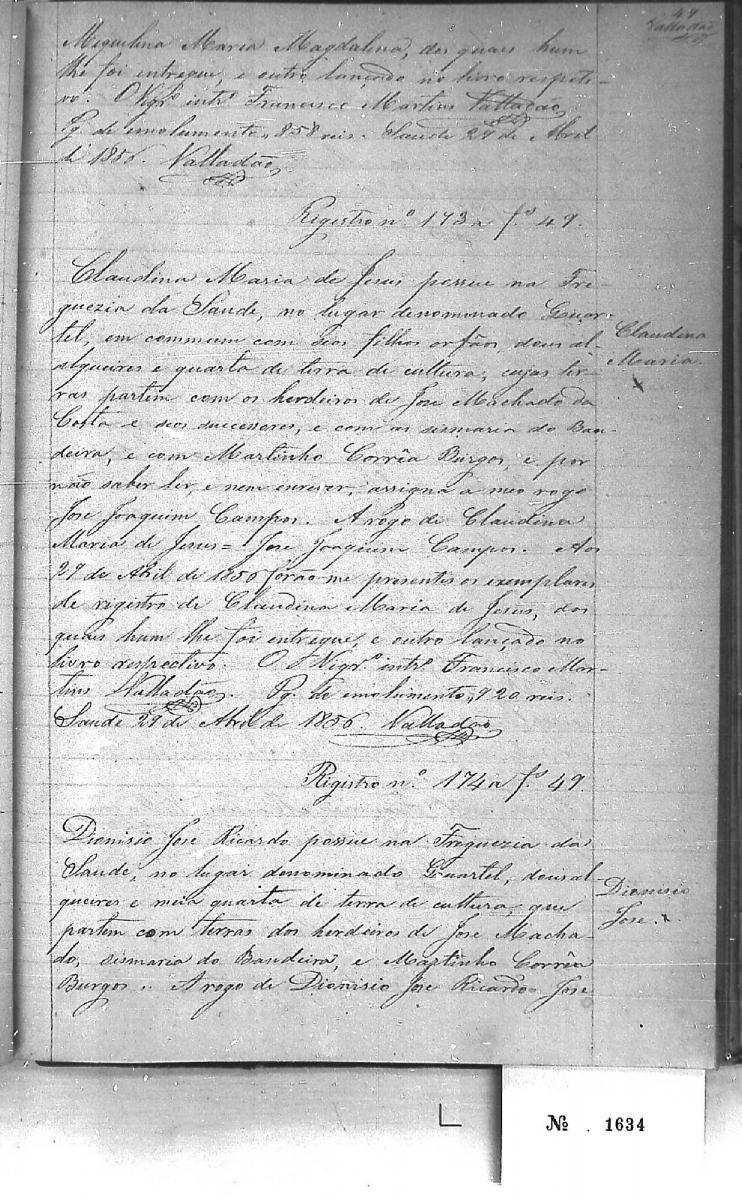 49
Valladão
Miquilina Maria Magdalina, dos quais hum
lhe foi entregue, e outro lançado no livro respeti-
vo. O Vigrº intrº Francisco Martins Valladão
Pg. de emolumento, 858 reis. Saude 29 de Abril
de 1856. Valladão
Registro nº 173 a fº 49.
Claudina Maria de Jesus possue na Fre-
guezia da Saude, no lugar denominado Quar-
tel, em commum com seos filhos orfãos, dous al-
alqueires e quarta de terra de cultura, cujas ter-
ras partem com os herdeiros de Jose Machado da
Costa e seos successores, e com as sismaria do Ban-
deira, e com Martinho Corrêa Burgos, e por
não saber ler, e nem escrever, assigna a meo rogo
Jose Joaquim Campos. A rogo de Claudina
Maria de Jesus = Jose Joaquim Campos. Aos
29 de Abril de 1856 forão-me presentes os exemplares
de registro de Claudina Maria de Jesus, dos
quais hum lhe foi entregue, e outro lançado no
livro respectivo. O Vigrº intrº Francisco Mar-
tins Valladão. Pg. de emolumento, 920 reis.
Saude 29 de Abril de 1856 Valladão
Claudina
Maria.
x
Registro nº 174 a fº 49.
Dionisio Jose Ricardo possue na Freguezia da
Saude, no lugar denominado Quartel, dous al-
queires e meia quarta de terra de cultura, que
partem com terras dos herdeiros de Jose Macha-
do, sismaria do Bandeira, e Martinho Corrêa
Burgos.. A rogo de Dionisio Jose Ricardo Jose
Dionisio
Jose. x
Nº . 1634